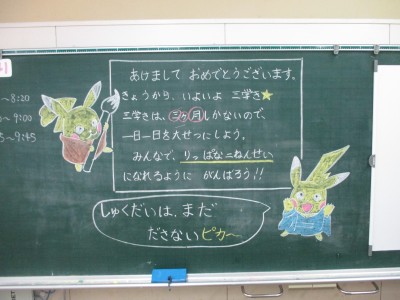 ~8:20
~9:00
~9:45
あけまして おめでとうございます。
きょうから、いよいよ 三学き★
三学きは、三ヶ月しかないので、
一日一日を大せつにしよう。
みんなで、りっぱな二ねんせい
になれるように がんばろう!!
しゅくだいは、まだ
ださないピカ～